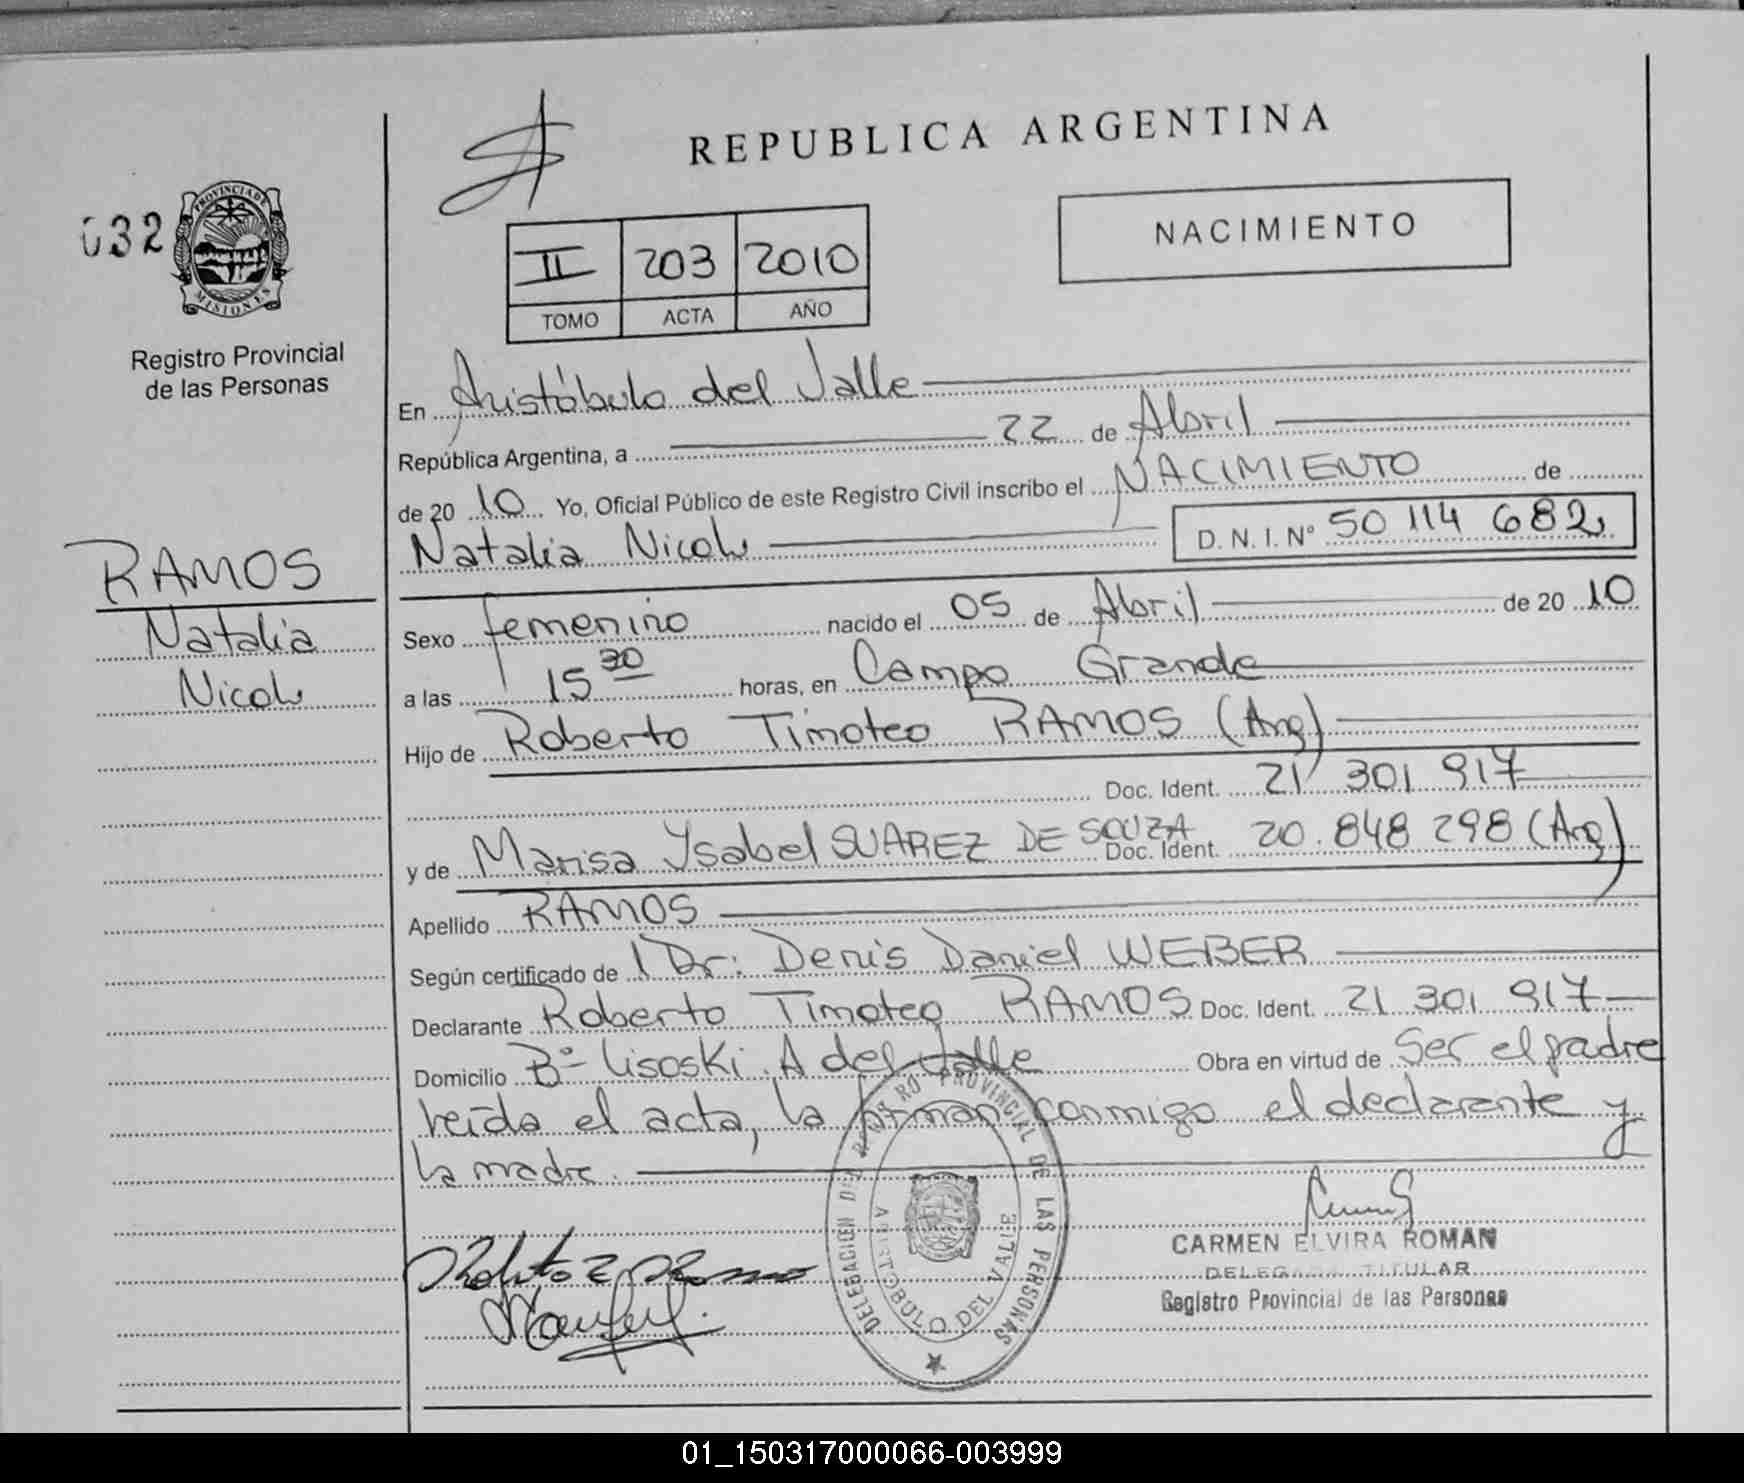 REPUBLICA ARGENTINA
NACIMIENTO
032
PROVINCIA DE
MISIONES
Registro Provincial
de las Personas
II 203 2010
TOMO ACTA AÑO
En Aristóbulo del Valle
República Argentina, a 22 de Abril
de 20 10 Yo, Oficial Público de este Registro Civil inscribo el NACIMIENTO de
Natalia Nicole D. N. I. Nº 50 114 682
RAMOS
Natalia
Nicole
Sexo femenino nacido el 05 de Abril de 20 10
a las 15 30 horas, en Campo Grande
Hijo de Roberto Timoteo RAMOS (Arg)
Doc. Ident. 21 301 917
y de Marisa Ysabel SUAREZ DE SOUZA Doc. Ident. 20.848 298 (Arg)
Apellido RAMOS
Según certificado de Dr. Denis Daniel WEBER
Declarante Roberto Timoteo RAMOS Doc. Ident. 21 301 917
Domicilio Bº Lisoski. A del Valle Obra en virtud de Ser el padre
leída el acta, la firman conmigo el declarante y
la madre.
DELEGACION DEL REGISTRO PROVINCIAL DE LAS PERSONAS
ARISTOBULO DEL VALLE
CARMEN ELVIRA ROMAN
DELEGADA TITULAR
Registro Provincial de las Personas
01_150317000066-003999